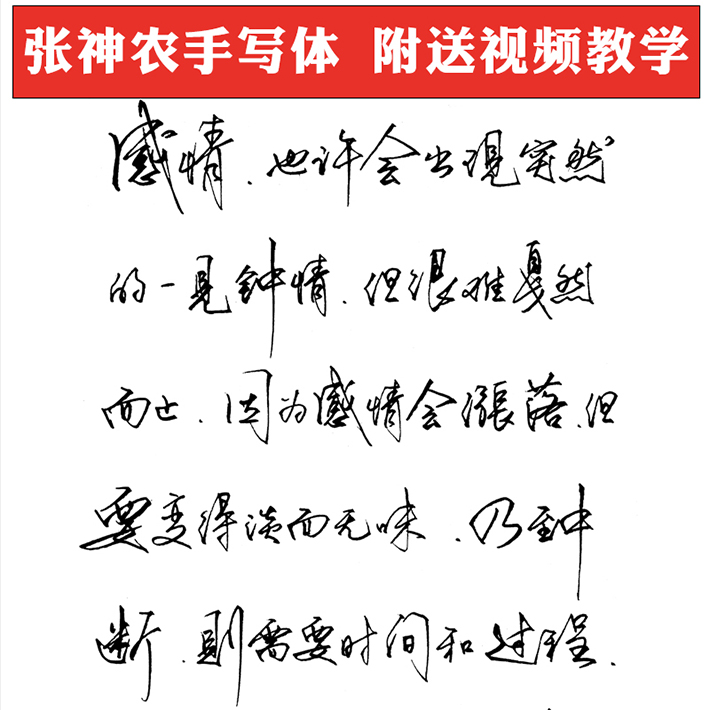 张神农手写体 附送视频教学
感情.也许会出现突然
的一見钟情.但很难戛然
而止.因为感情会漲落.但
要变得淡而无味.乃至中
断.则需要时间和过程.